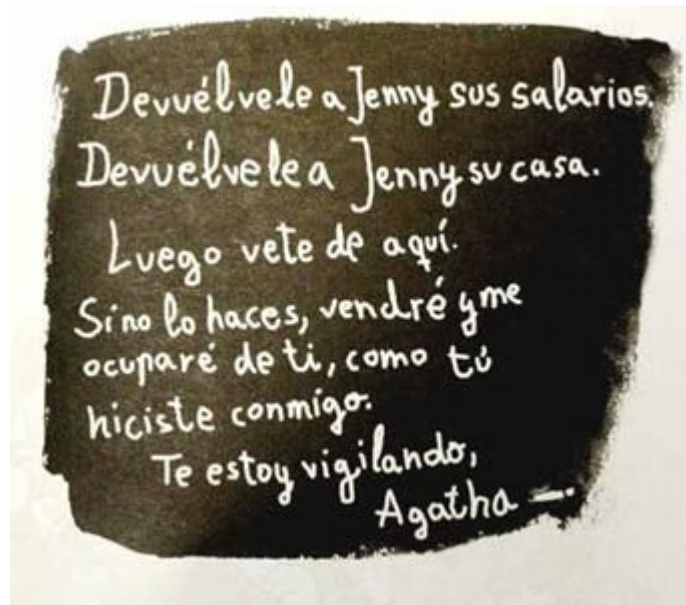 Devuélvele a Jenny sus salarios.
Devuélvele a Jenny su casa.
Luego vete de aquí.
Si no lo haces, vendré y me
ocuparé de ti, como tú
hiciste conmigo.
Te estoy vigilando,
Agatha —.